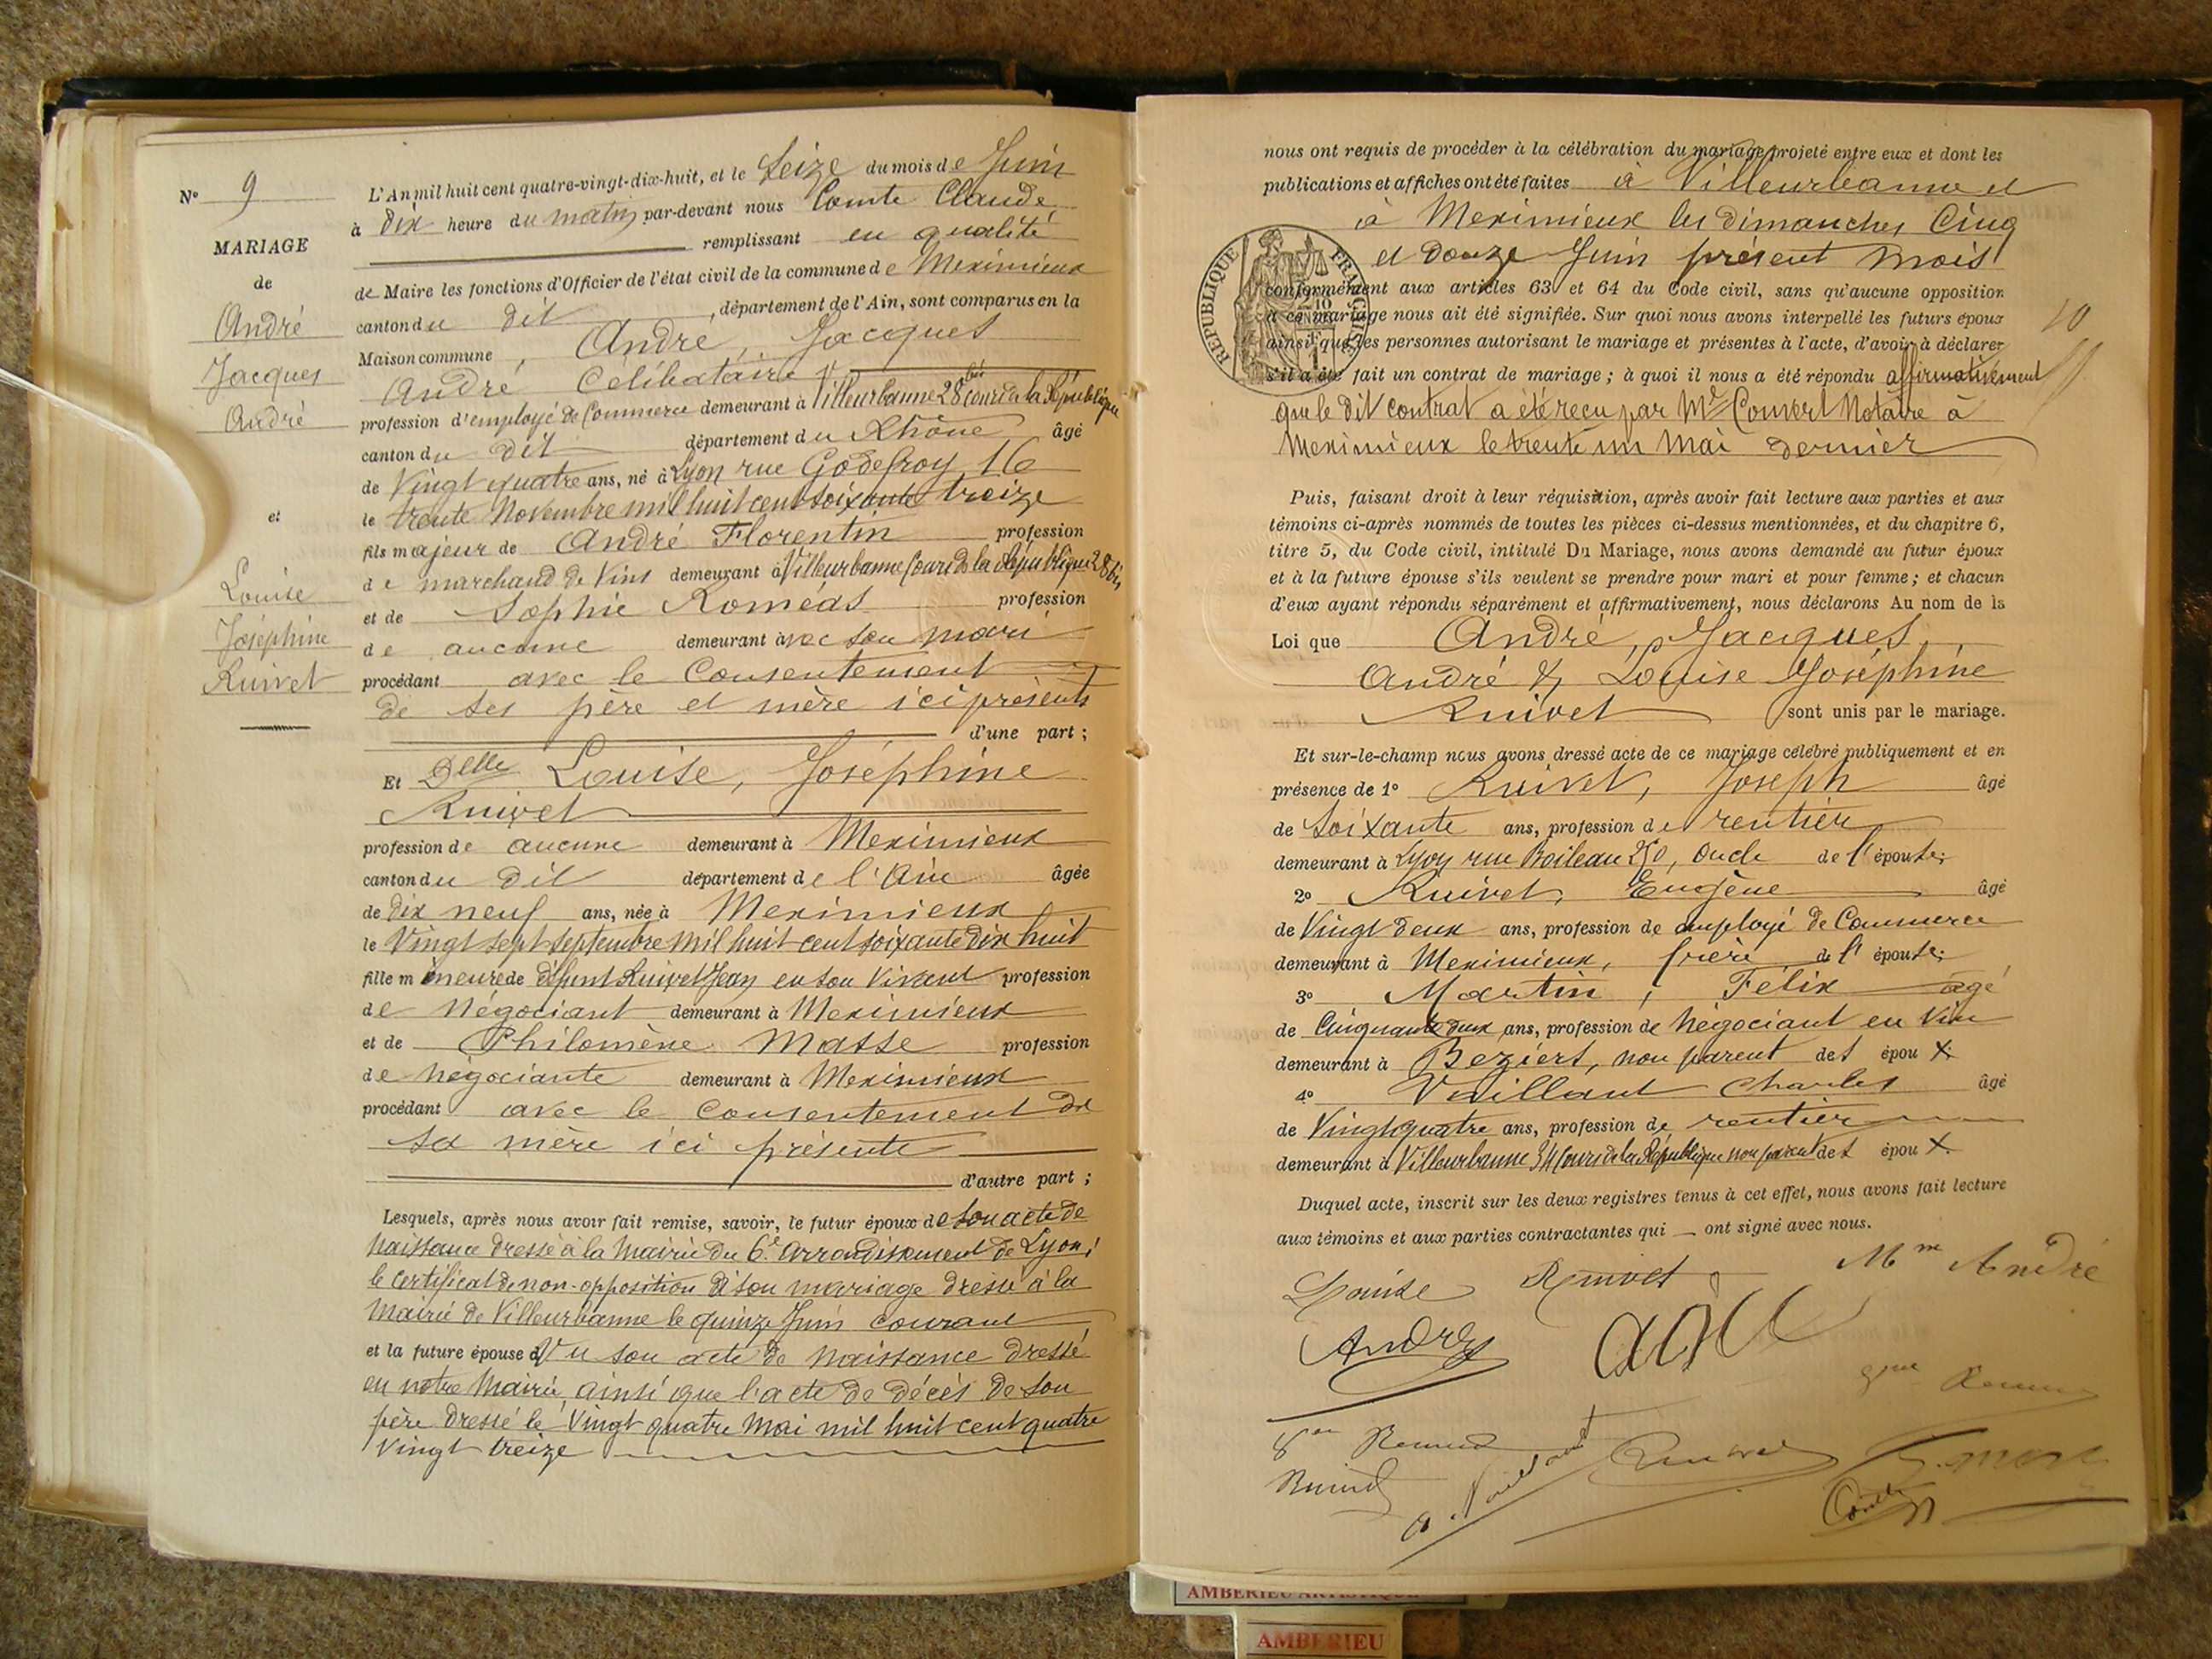 N° 9
MARIAGE
de
André
Jacques
André
et
Louise
Joséphine
Ruivet
L'An mil huit cent quatre-vingt-dix-huit, et le Seize du mois de Juin
à Dix heure du matin par-devant nous Comte Claude
remplissant en qualité
de Maire les fonctions d'Officier de l'état civil de la commune de Meximieux
canton du dit, département de l'Ain, sont comparus en la
Maison commune, André, Jacques
André Célibataire
profession d'employé de Commerce demeurant à Villeurbanne 28 bis cours de la République
canton du dit département du Rhône âgé
de Vingt quatre ans, né à Lyon rue Godefroy 16
le trente Novembre mil huit cent soixante treize
fils majeur de André Florentin profession
de marchand de Vins demeurant à Villeurbanne Cours de la République 28 bis,
et de Sophie Roméas profession
de aucune demeurant avec son mari
procédant avec le Consentement
de ses père et mère ici présents
d'une part ;
Et Delle Louise, Joséphine
Ruivet
profession de aucune demeurant à Meximieux
canton du dit département de l'Ain âgée
de dix neuf ans, née à Meximieux
le Vingt sept septembre mil huit cent soixante dix huit
fille mineure de défunt Ruivet Jean en son vivant profession
de Négociant demeurant à Meximieux
et de Philomène Masse profession
de négociante demeurant à Meximieux
procédant avec le Consentement de
sa mère ici présente
d'autre part ;
Lesquels, après nous avoir fait remise, savoir, le futur époux de son acte de
Naissance dressé à la Mairie du 6e arrondissement de Lyon,
le certificat de non-opposition à son mariage dressé à la
Mairie de Villeurbanne le quinze Juin courant
et la future épouse Vu son acte de naissance dressé
en notre Mairie, ainsi que l'acte de décès de son
père dressé le Vingt quatre Mai mil huit cent quatre
Vingt treize
nous ont requis de procéder à la célébration du mariage projeté entre eux et dont les
publications et affiches ont été faites à Villeurbanne et
à Meximieux les dimanches Cinq
et Douze Juin présent mois
REPUBLIQUE FRANÇAISE
conformément aux articles 63 et 64 du Code civil, sans qu'aucune opposition
à ce mariage nous ait été signifiée. Sur quoi nous avons interpellé les futurs époux
ainsi que les personnes autorisant le mariage et présentes à l'acte, d'avoir à déclarer
s'il a été fait un contrat de mariage ; à quoi il nous a été répondu affirmativement
que le dit contrat a été reçu par Me Convert Notaire à
Meximieux le trente un Mai dernier
Puis, faisant droit à leur réquisition, après avoir fait lecture aux parties et aux
témoins ci-après nommés de toutes les pièces ci-dessus mentionnées, et du chapitre 6,
titre 5, du Code civil, intitulé Du Mariage, nous avons demandé au futur époux
et à la future épouse s'ils veulent se prendre pour mari et pour femme ; et chacun
d'eux ayant répondu séparément et affirmativement, nous déclarons Au nom de la
Loi que André, Jacques,
André & Louise Joséphine
Ruivet sont unis par le mariage.
Et sur-le-champ nous avons dressé acte de ce mariage célébré publiquement et en
présence de 1° Ruivet, Joseph âgé
de Soixante ans, profession de rentier
demeurant à Lyon rue Boileau 250, oncle de l'épouse;
2° Ruivet, Eugène âgé
de Vingt deux ans, profession de employé de Commerce
demeurant à Meximieux, frère de l'épouse;
3° Martin, Félix âgé
de Cinquante deux ans, profession de Négociant en Vin
demeurant à Beziers, non parent des époux
4° Vaillant Charles âgé
de Vingt quatre ans, profession de rentier
demeurant à Villeurbanne 34 Cours de la République non parent des époux.
Duquel acte, inscrit sur les deux registres tenus à cet effet, nous avons fait lecture
aux témoins et aux parties contractantes qui ont signé avec nous.
Louise Ruivet Mme André
André
Ruivet
Vaillant
Comte
AMBERIEU ARTISTIQUE
AMBERIEU